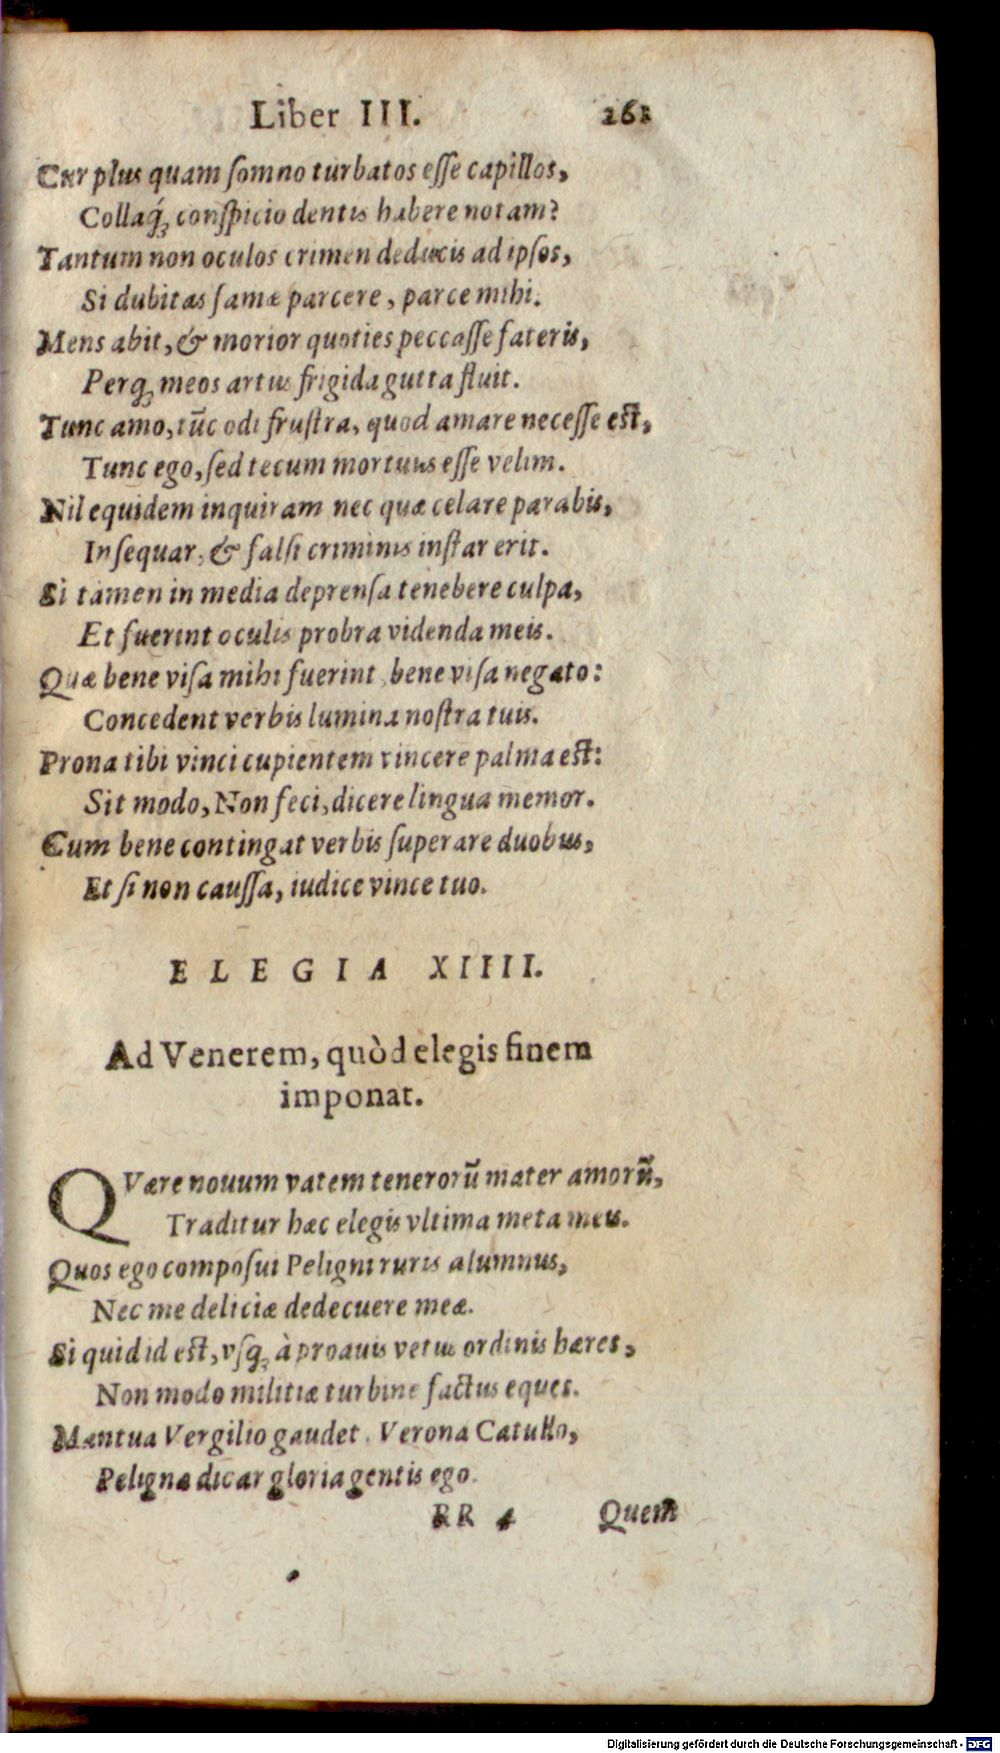 Liber III. 261
Cur plus quam ſomno turbatos eſſe capillos,
Collaq́; conſpicio dentis habere notam?
Tantum non oculos crimen deducis ad ipſos,
Si dubitas famæ parcere, parce mihi.
Mens abit, & morior quoties peccaſſe fateris,
Perq; meos artus frigida gutta fluit.
Tunc amo, tūc odi fruſtra, quod amare neceſſe eſt,
Tunc ego, ſed tecum mortuus eſſe velim.
Nil equidem inquiram nec quæ celare parabis,
Inſequar, & falſi criminis inſtar erit.
Si tamen in media deprenſa tenebere culpa,
Et fuerint oculis probra videnda meis.
Quæ bene viſa mihi fuerint, bene viſa negato:
Concedent verbis lumina noſtra tuis.
Prona tibi vinci cupientem vincere palma eſt:
Sit modo, Non feci, dicere lingua memor.
Cum bene contingat verbis ſuperare duobus,
Et ſi non cauſſa, iudice vince tuo.
ELEGIA XIIII.
Ad Venerem, quòd elegis finem
imponat.
QVære nouum vatem tenerorū mater amorū,
Traditur hæc elegis vltima meta meis.
Quos ego compoſui Peligni ruris alumnus,
Nec me deliciæ dedecuere meæ.
Si quid id eſt, vſq; à proauis vetus ordinis hæres,
Non modo militiæ turbine factus eques.
Mantua Vergilio gaudet, Verona Catullo,
Pelignæ dicar gloria gentis ego.
RR 4 Quem
Digitalisierung gefördert durch die Deutsche Forschungsgemeinschaft - DFG